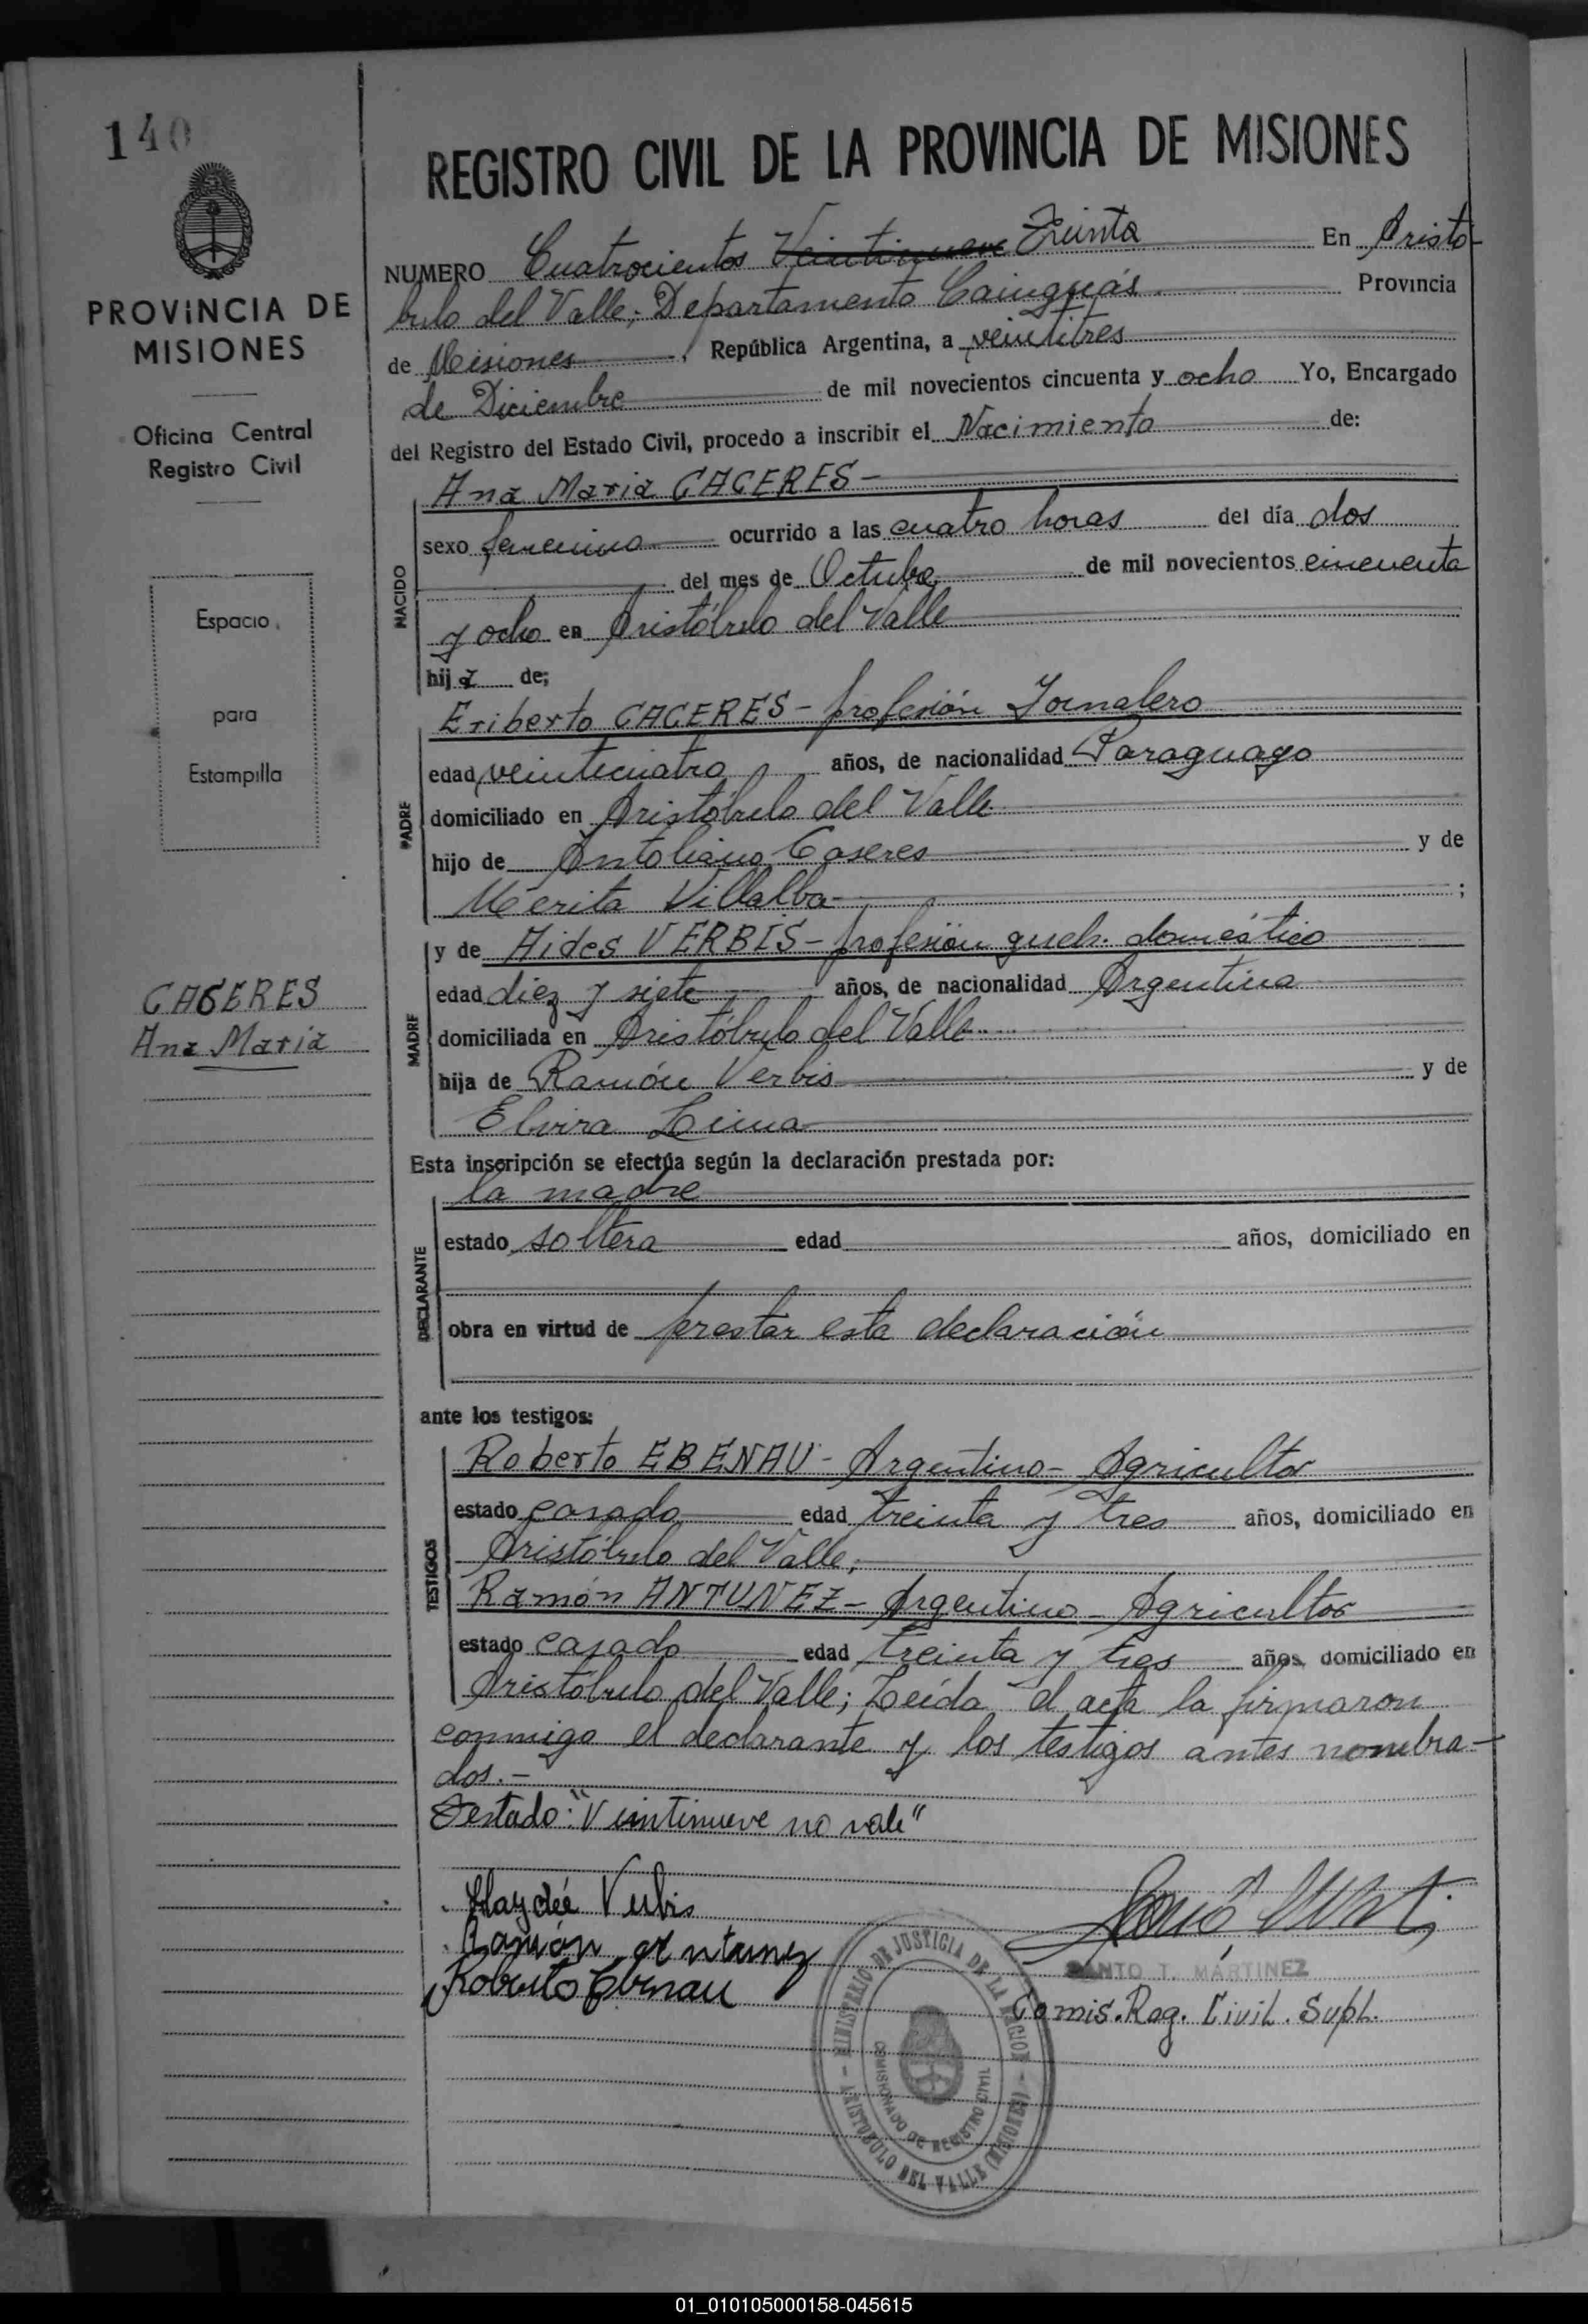 140
PROVINCIA DE
MISIONES
Oficina Central
Registro Civil
Espacio
para
Estampilla
CACERES
Ana Maria
REGISTRO CIVIL DE LA PROVINCIA DE MISIONES
NUMERO Cuatrocientos Veintinueve Treinta En Aristó-
bulo del Valle, Departamento Cainguás Provincia
de Misiones, República Argentina, a veintitres
de Diciembre de mil novecientos cincuenta y ocho Yo, Encargado
del Registro del Estado Civil, procedo a inscribir el Nacimiento de:
NACIDO
Ana Maria CACERES-
sexo femenino ocurrido a las cuatro horas del día dos
del mes de Octubre de mil novecientos cincuenta
y ocho en Aristóbulo del Valle
hija de;
PADRE
Eriberto CACERES- profesión Jornalero
edad veinticuatro años, de nacionalidad Paraguayo
domiciliado en Aristóbulo del Valle
hijo de Antoliano Caseres y de
Merita Villalba ;
MADRE
y de Aides VERBIS- profesión queh. doméstico
edad diez y siete años, de nacionalidad Argentina
domiciliada en Aristóbulo del Valle
hija de Ramón Verbis y de
Elvira Lima
Esta inscripción se efectúa según la declaración prestada por:
DECLARANTE
la madre
estado soltera edad años, domiciliado en
obra en virtud de prestar esta declaración
ante los testigos:
TESTIGOS
Roberto EBENAU- Argentino- Agricultor
estado casado edad treinta y tres años, domiciliado en
Aristóbulo del Valle;
Ramón ANTUNEZ- Argentino- Agricultor
estado casado edad treinta y tres años, domiciliado en
Aristóbulo del Valle; Leída el acta la firmaron
conmigo el declarante y los testigos antes nombra-
dos.-
Testado: "Veintinueve no vale"
Haydée Verbis
Ramón Antunez
Roberto Ebenau
SANTO T. MARTINEZ
Comis. Reg. Civil. Supl.
MINISTERIO DE JUSTICIA DE LA NACION
COMISIONADO DE REGISTRO CIVIL
- ARISTOBULO DEL VALLE (MISIONES) -
01_010105000158-045615